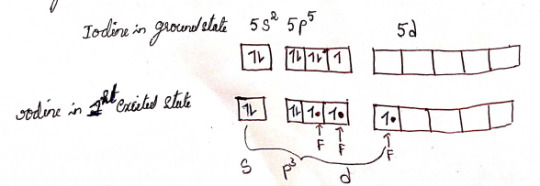 Iodine in ground state 5s² 5p⁵ 5d
1l 1l 1l 1
iodine in 1st excited state 1l 1l 1• 1• 1•
F F F
s p³ d